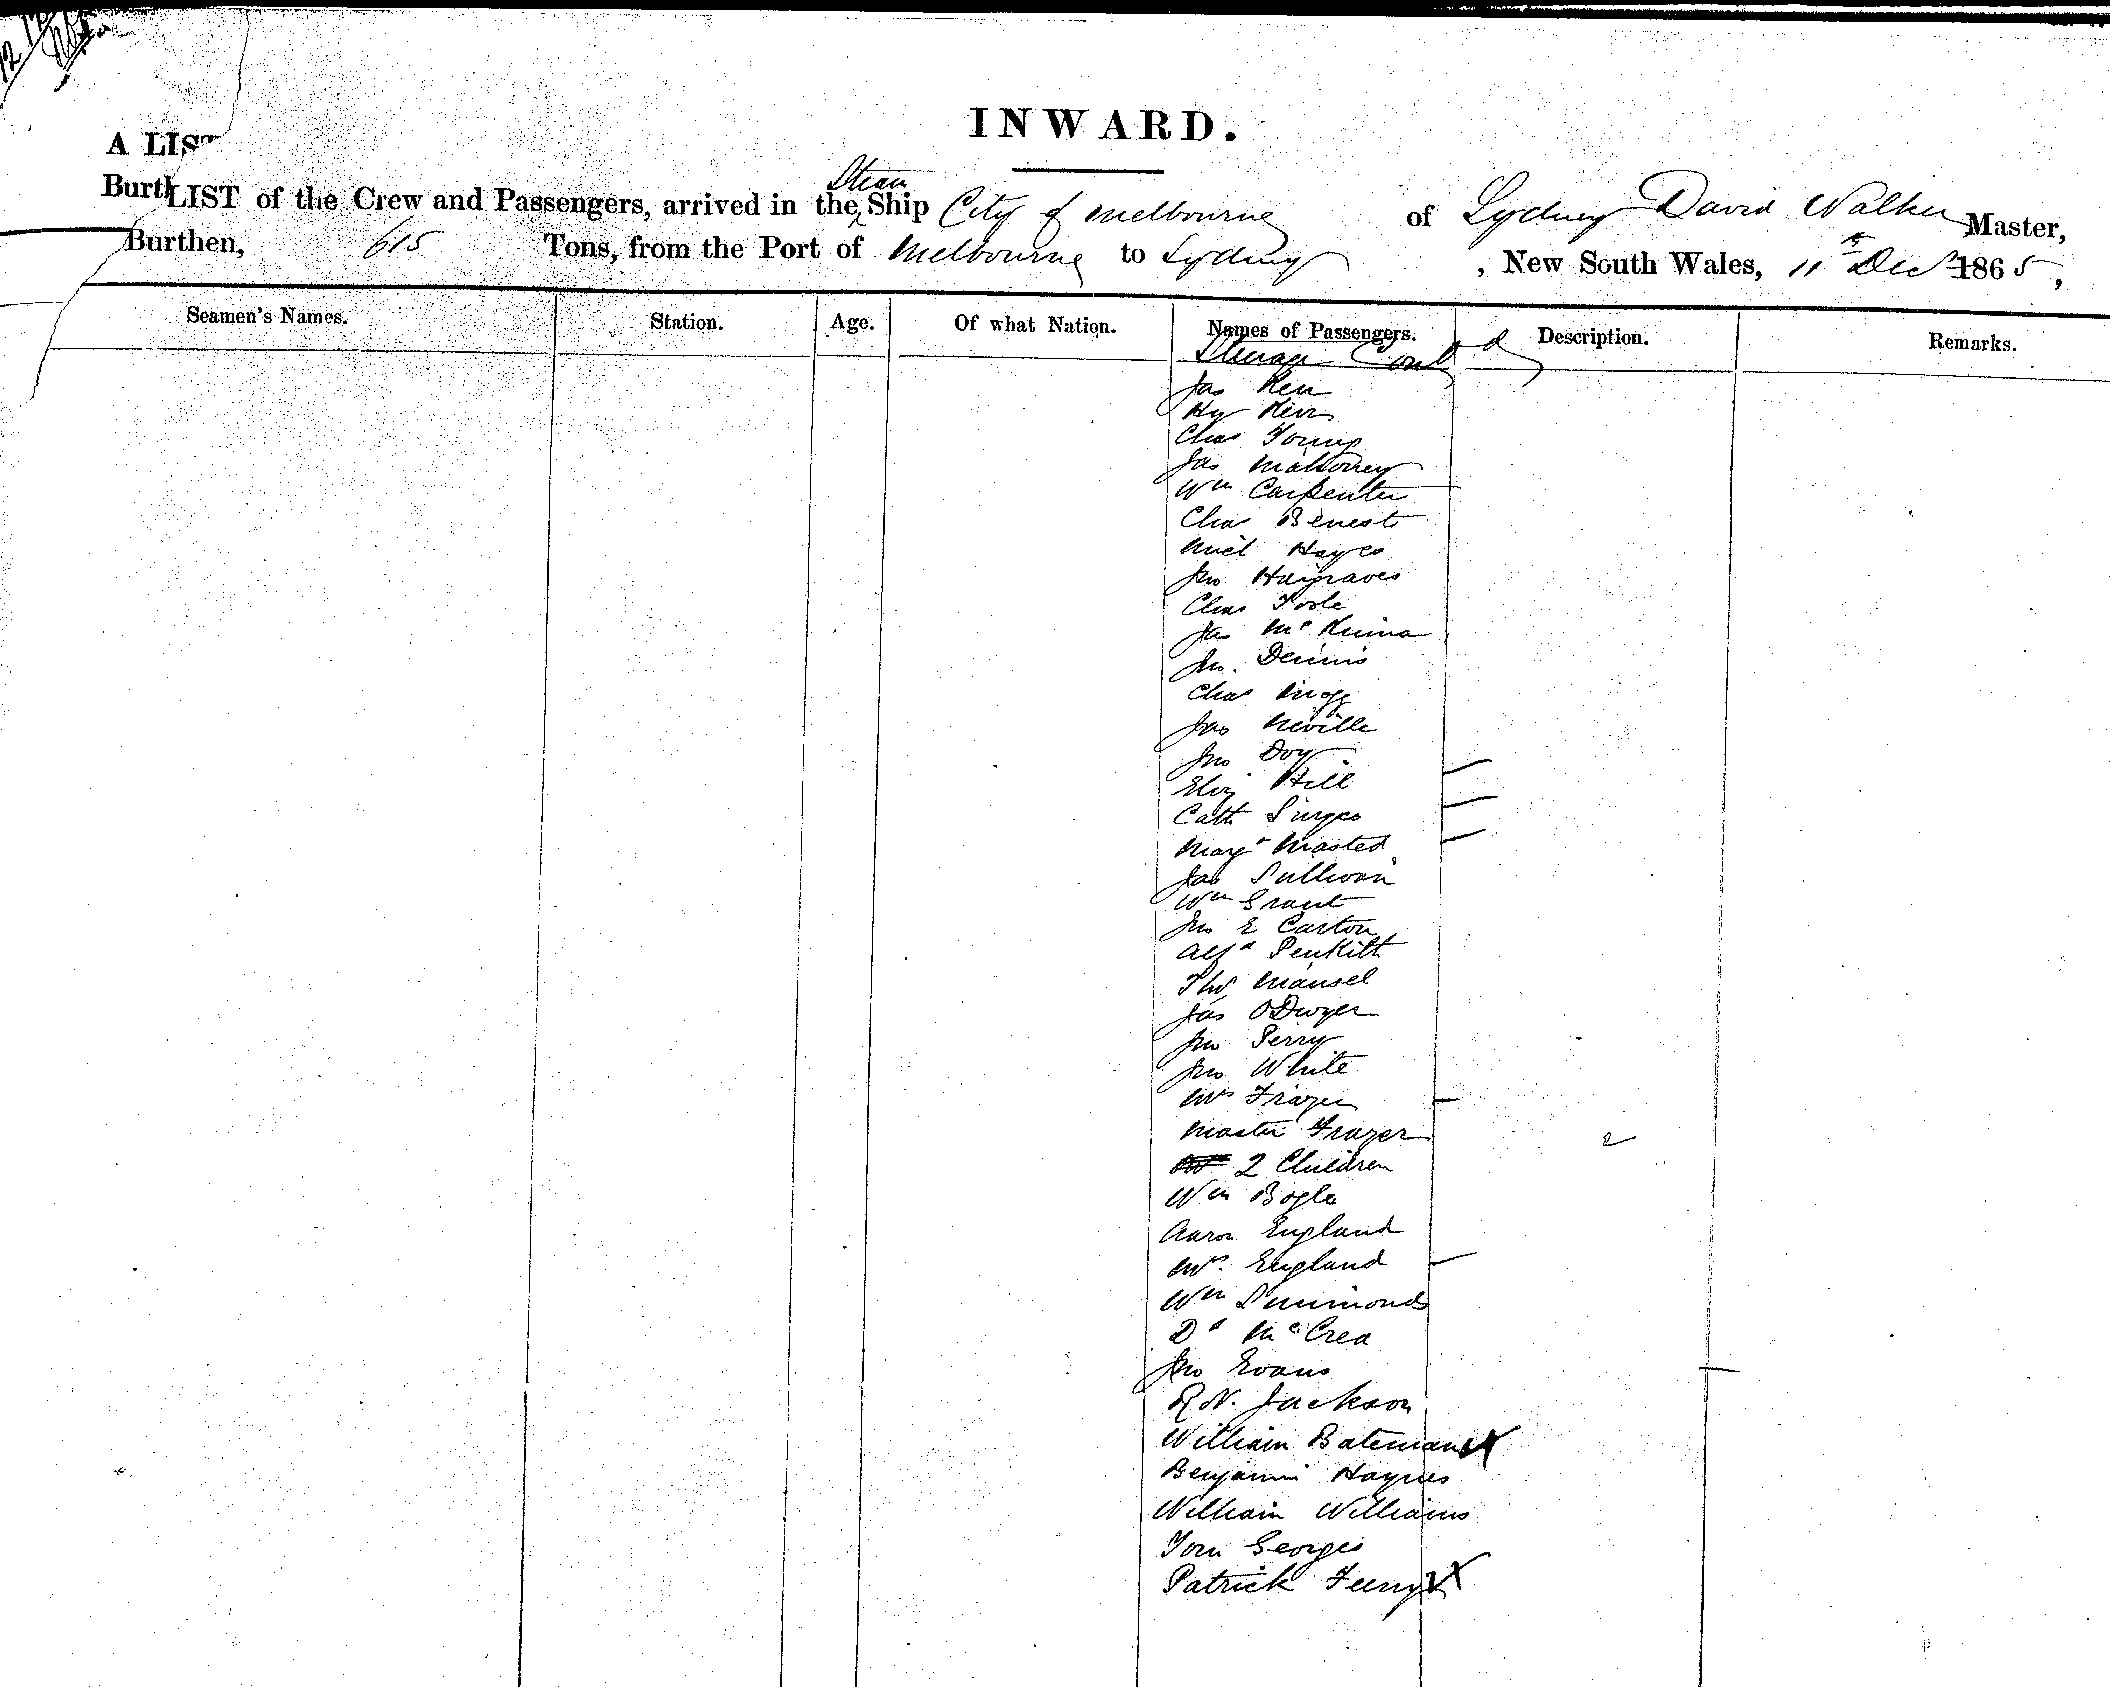 INWARD.
A LIST
Burth
LIST of the Crew and Passengers, arrived in the Steam Ship City of Melbourne of Sydney David Walker Master,
Burthen, 615 Tons, from the Port of Melbourne to Sydney, New South Wales, 11th Decr 1865,
Seamen's Names. Station. Age. Of what Nation. Names of Passengers. Description. Remarks.
Steerage Contd
Jas Kerr
Hy Kerr
Chas Young
Jas Mahoney
Wm Carpenter
Chas Benest
Micl Hayes
Jno Hargraves
Chas Poole
Jas McKenna
Jno. Dennis
Chas
Jas Neville
Jno Doy
Eliz Hill
Cath
Margt Masted
Jas Sullivan
Wm Grant
Jno E Carton
Alfd Penkitt
Thos Mansel
Jas O'Dwyer
Jno Perry
Jno White
Mrs Frazer
Master Frazer 2
2 Children
Wm Bogle
Aaron England
Mrs. England
Wm Simmonds
Dd McCrea
Jno Evans
R.N. Jackson
William Bateman
Benjamin Haynes
William Williams
Tom Georges
Patrick Feeny